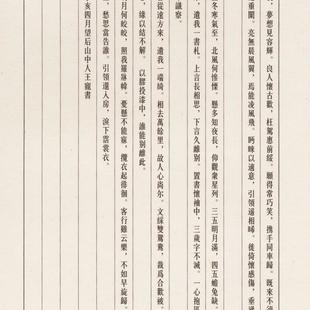 ，夢想見容輝。良人懷古歡，枉駕惠前綏。願得常巧笑，攜手同車歸。既來不須
重闈。亮無晨風翼，焉能凌風飛。眄睞以適意，引領遙相睎。徙倚懷感傷，垂涕
冬寒氣至，北風何慘慄。愁多知夜長，仰觀衆星列。三五明月滿，四五蟾兔缺。
，遺我一書札。上言長相思，下言久離別。置書懷袖中，三歲字不滅。一心抱區
識察。
從遠方來，遺我一端綺。相去萬餘里，故人心尚尔。文綵雙鴛鴦，裁爲合歡被。
，緣以結不解。以膠投漆中，誰能別離此。
月何皎皎，照我羅牀幃。憂愁不能寐，攬衣起徘徊。客行雖云樂，不如早旋歸。
，愁思當告誰。引領還入房，淚下霑裳衣。
亥四月望后山中人王寵書